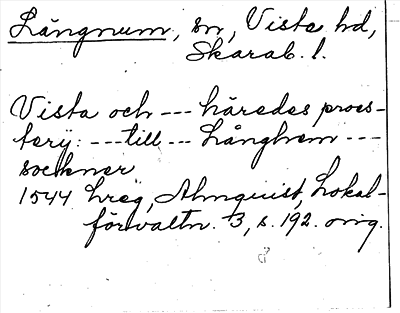 Långnum, sn, Vista hd,
Skarab. l.
Vista och --- häredes proes-
terij: --- till --- Långhem ---
socknar
1544 Lreg, Almquist, Lokal-
förvaltn. 3, s. 192. orig.